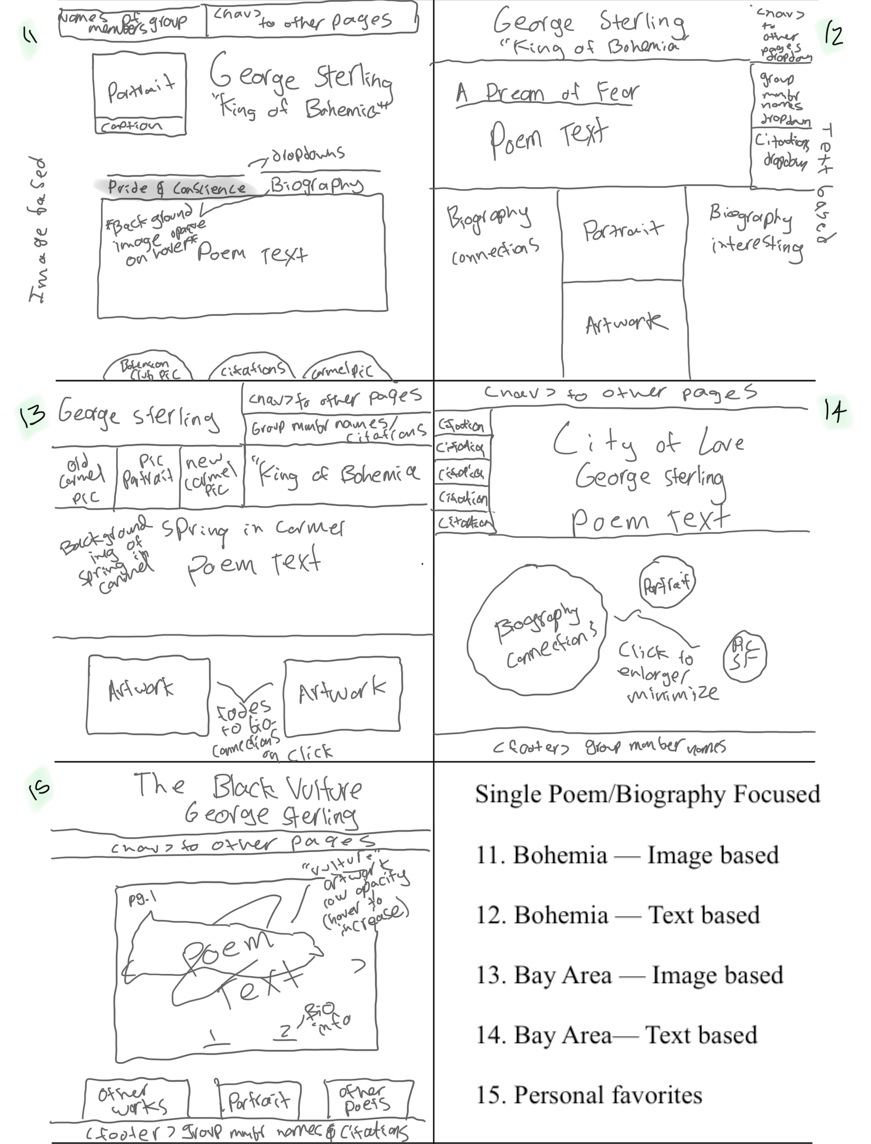 11
Names of
members group
<nav> to other pages
Portrait
caption
George Sterling
"King of Bohemia"
Image based
dropdowns
Pride & Conscience
Biography
*Background
image opaque
on hover*
Poem Text
Bohemian
Club Pic
citations
Carmel pic
12
George Sterling
"King of Bohemia"
<nav>
to
other
pages
dropdown
A Dream of Fear
Poem Text
group
mmbr
names
dropdown
Citations
dropdown
Text based
Biography
connections
Portrait
Artwork
Biography
interesting
13
George Sterling
<nav> to other pages
Group mmbr names/
citations
old
Carmel
pic
pic
Portrait
new
Carmel
pic
"King of Bohemia
Background
img of
spring in
carmel
Spring in Carmel
Poem Text
Artwork
fades
to bio-
connections
on click
Artwork
14
<nav> to other pages
Citation
Citation
Citation
Citation
Citation
City of Love
George Sterling
Poem Text
Biography
connections
Portrait
SF
Click to
enlarge/
minimize
<footer> group member names
15
The Black Vulture
George Sterling
<nav> to other pages
"vulture"
artwork
low opacity
(hover to
increase)
pg.1
Poem
Text
>
1
2
Bio
info
Other
works
Portrait
Other
Poets
<footer> group mmbr names & citations
Single Poem/Biography Focused
11. Bohemia — Image based
12. Bohemia — Text based
13. Bay Area — Image based
14. Bay Area— Text based
15. Personal favorites